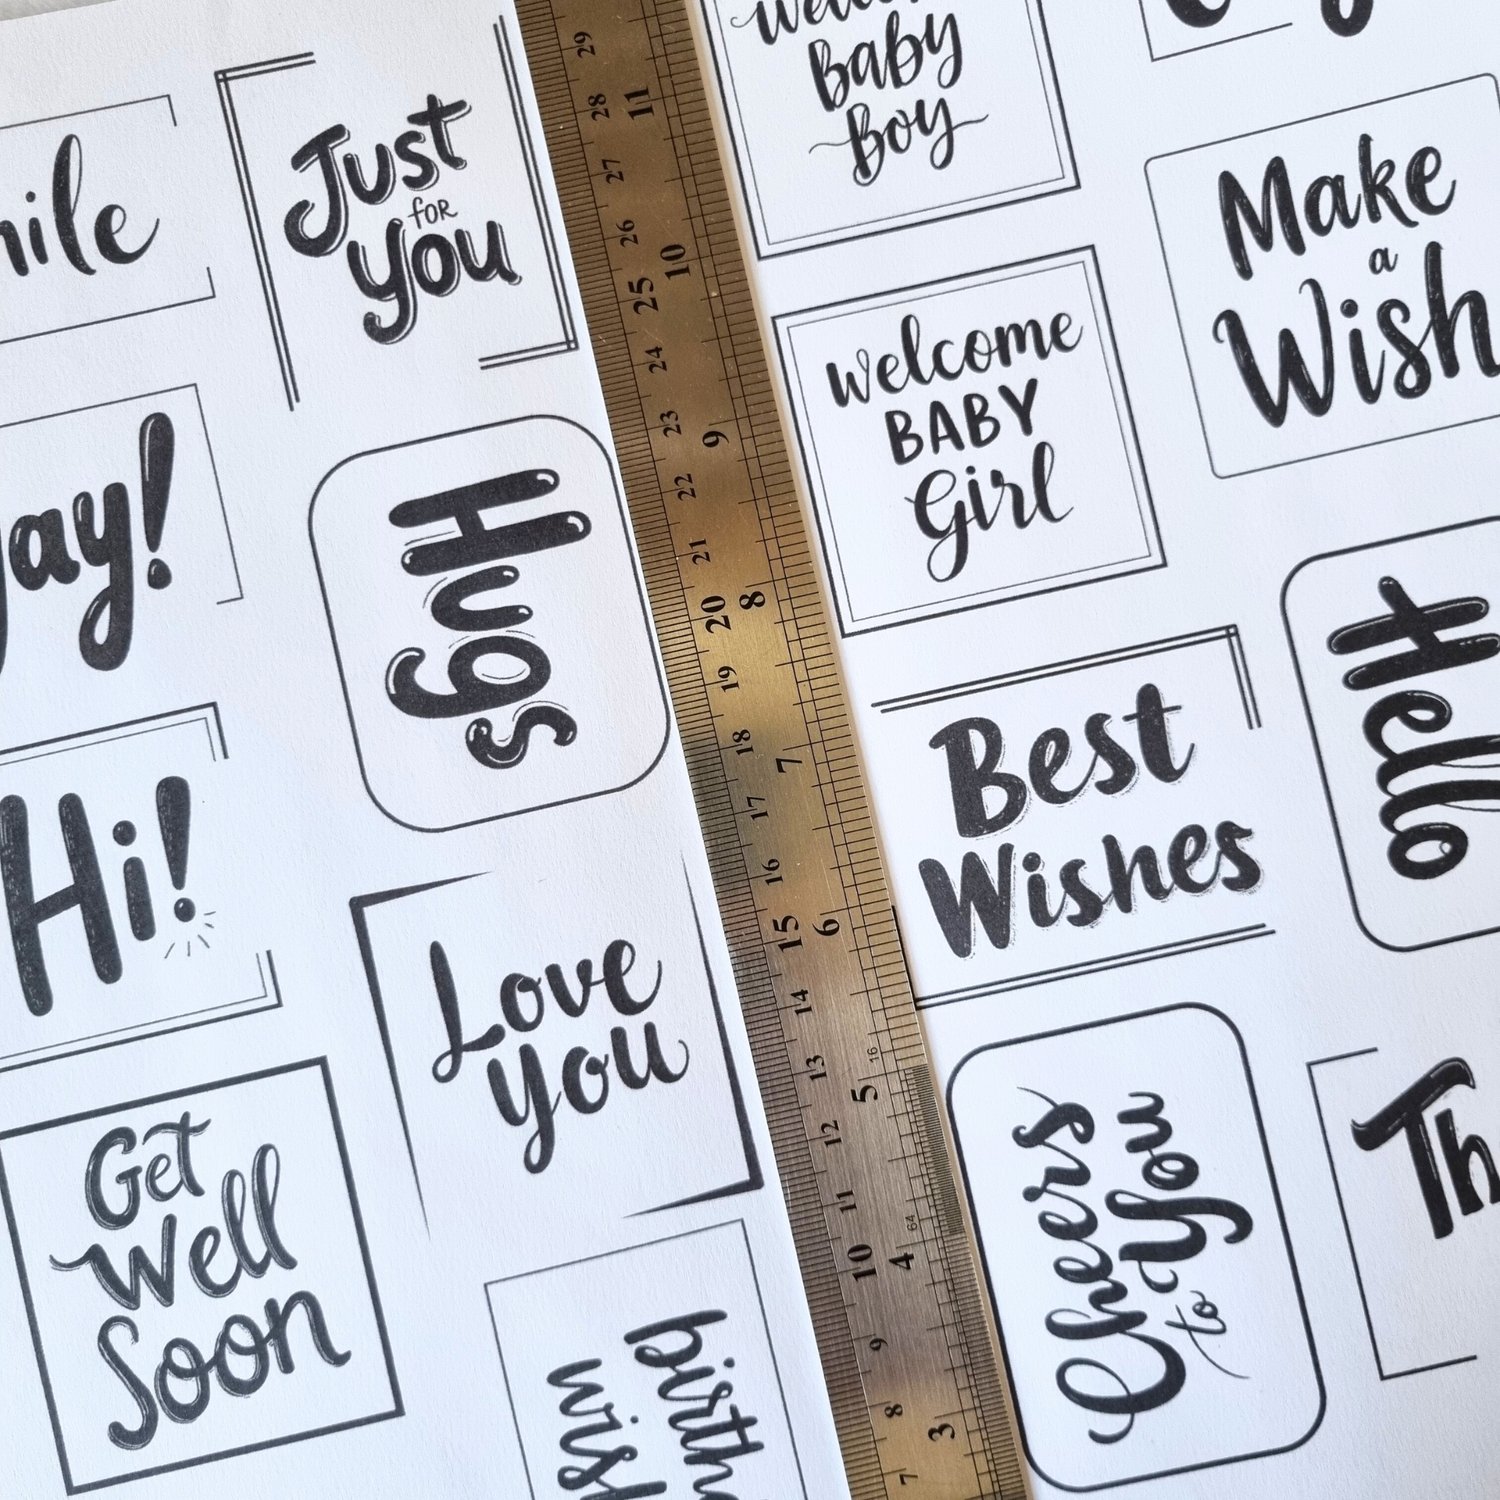 Just
for
you
Hugs
Hi!
Love
you
Get
Well
Soon
birth
wish
29
28
27
26
25
24
23
22
21
20
19
18
17
16
15
14
13
12
11
10
9
8
7
11
10
9
8
7
6
5
4
3
16
64
Baby
Boy
welcome
BABY
Girl
Best
Wishes
Cheers
to you
Make
a
Wish
Hello
Th